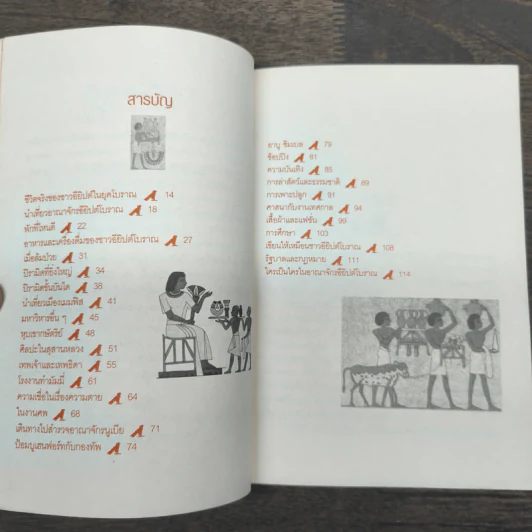 สารบัญ
ชีวิตจริงของชาวอียิปต์ในยุคโบราณ 14
นำเที่ยวอาณาจักรอียิปต์โบราณ 18
พักที่ไหนดี 22
อาหารและเครื่องดื่มของชาวอียิปต์โบราณ 27
เมื่อล้มป่วย 31
ปิรามิดที่ยิ่งใหญ่ 34
ปิรามิดขั้นบันได 38
นำเที่ยวเมืองเมมฟิส 41
มหาวิหารอื่น ๆ 45
หุบเขากษัตริย์ 48
ศิลปะในสุสานหลวง 51
เทพเจ้าและเทพธิดา 55
โรงงานทำมัมมี่ 61
ความเชื่อในเรื่องความตาย 64
ในงานศพ 68
เดินทางไปสำรวจอาณาจักรนูเบีย 71
ป้อมบูเฮนฟอร์ทกับกองทัพ 74
อาบู ซิมเบล 79
ช้อปปิ้ง 81
ความบันเทิง 85
การล่าสัตว์และธรรมชาติ 89
การเพาะปลูก 91
ศาสนากับงานเทศกาล 94
เสื้อผ้าและแฟชั่น 99
การศึกษา 103
เขียนให้เหมือนชาวอียิปต์โบราณ 108
รัฐบาลและกฎหมาย 111
ใครเป็นใครในอาณาจักรอียิปต์โบราณ 114